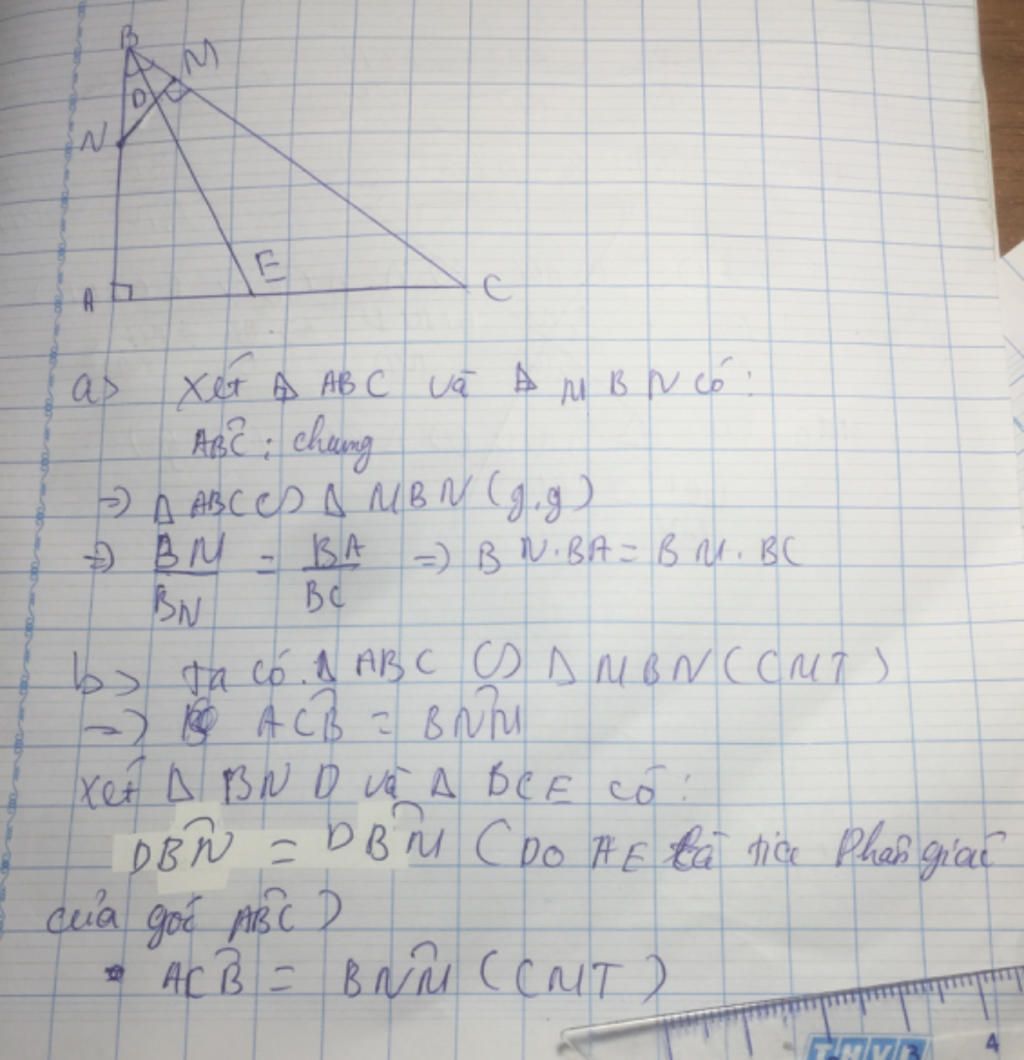 B
M
D
N
E
A
C
a> Xét Δ ABC và Δ MBN có:
ABC: chung
=> Δ ABC ∽ Δ MBN (g.g)
=> BM/BN = BA/BC => BN.BA = BM.BC
b> Ta có Δ ABC ∽ Δ MBN (CMT)
=> ACB = BNM
Xét Δ BND và Δ BCE có:
DBN = DBM (DO AE là tia Phân giác
của góc ABC)
ACB = BNM (CMT)
4